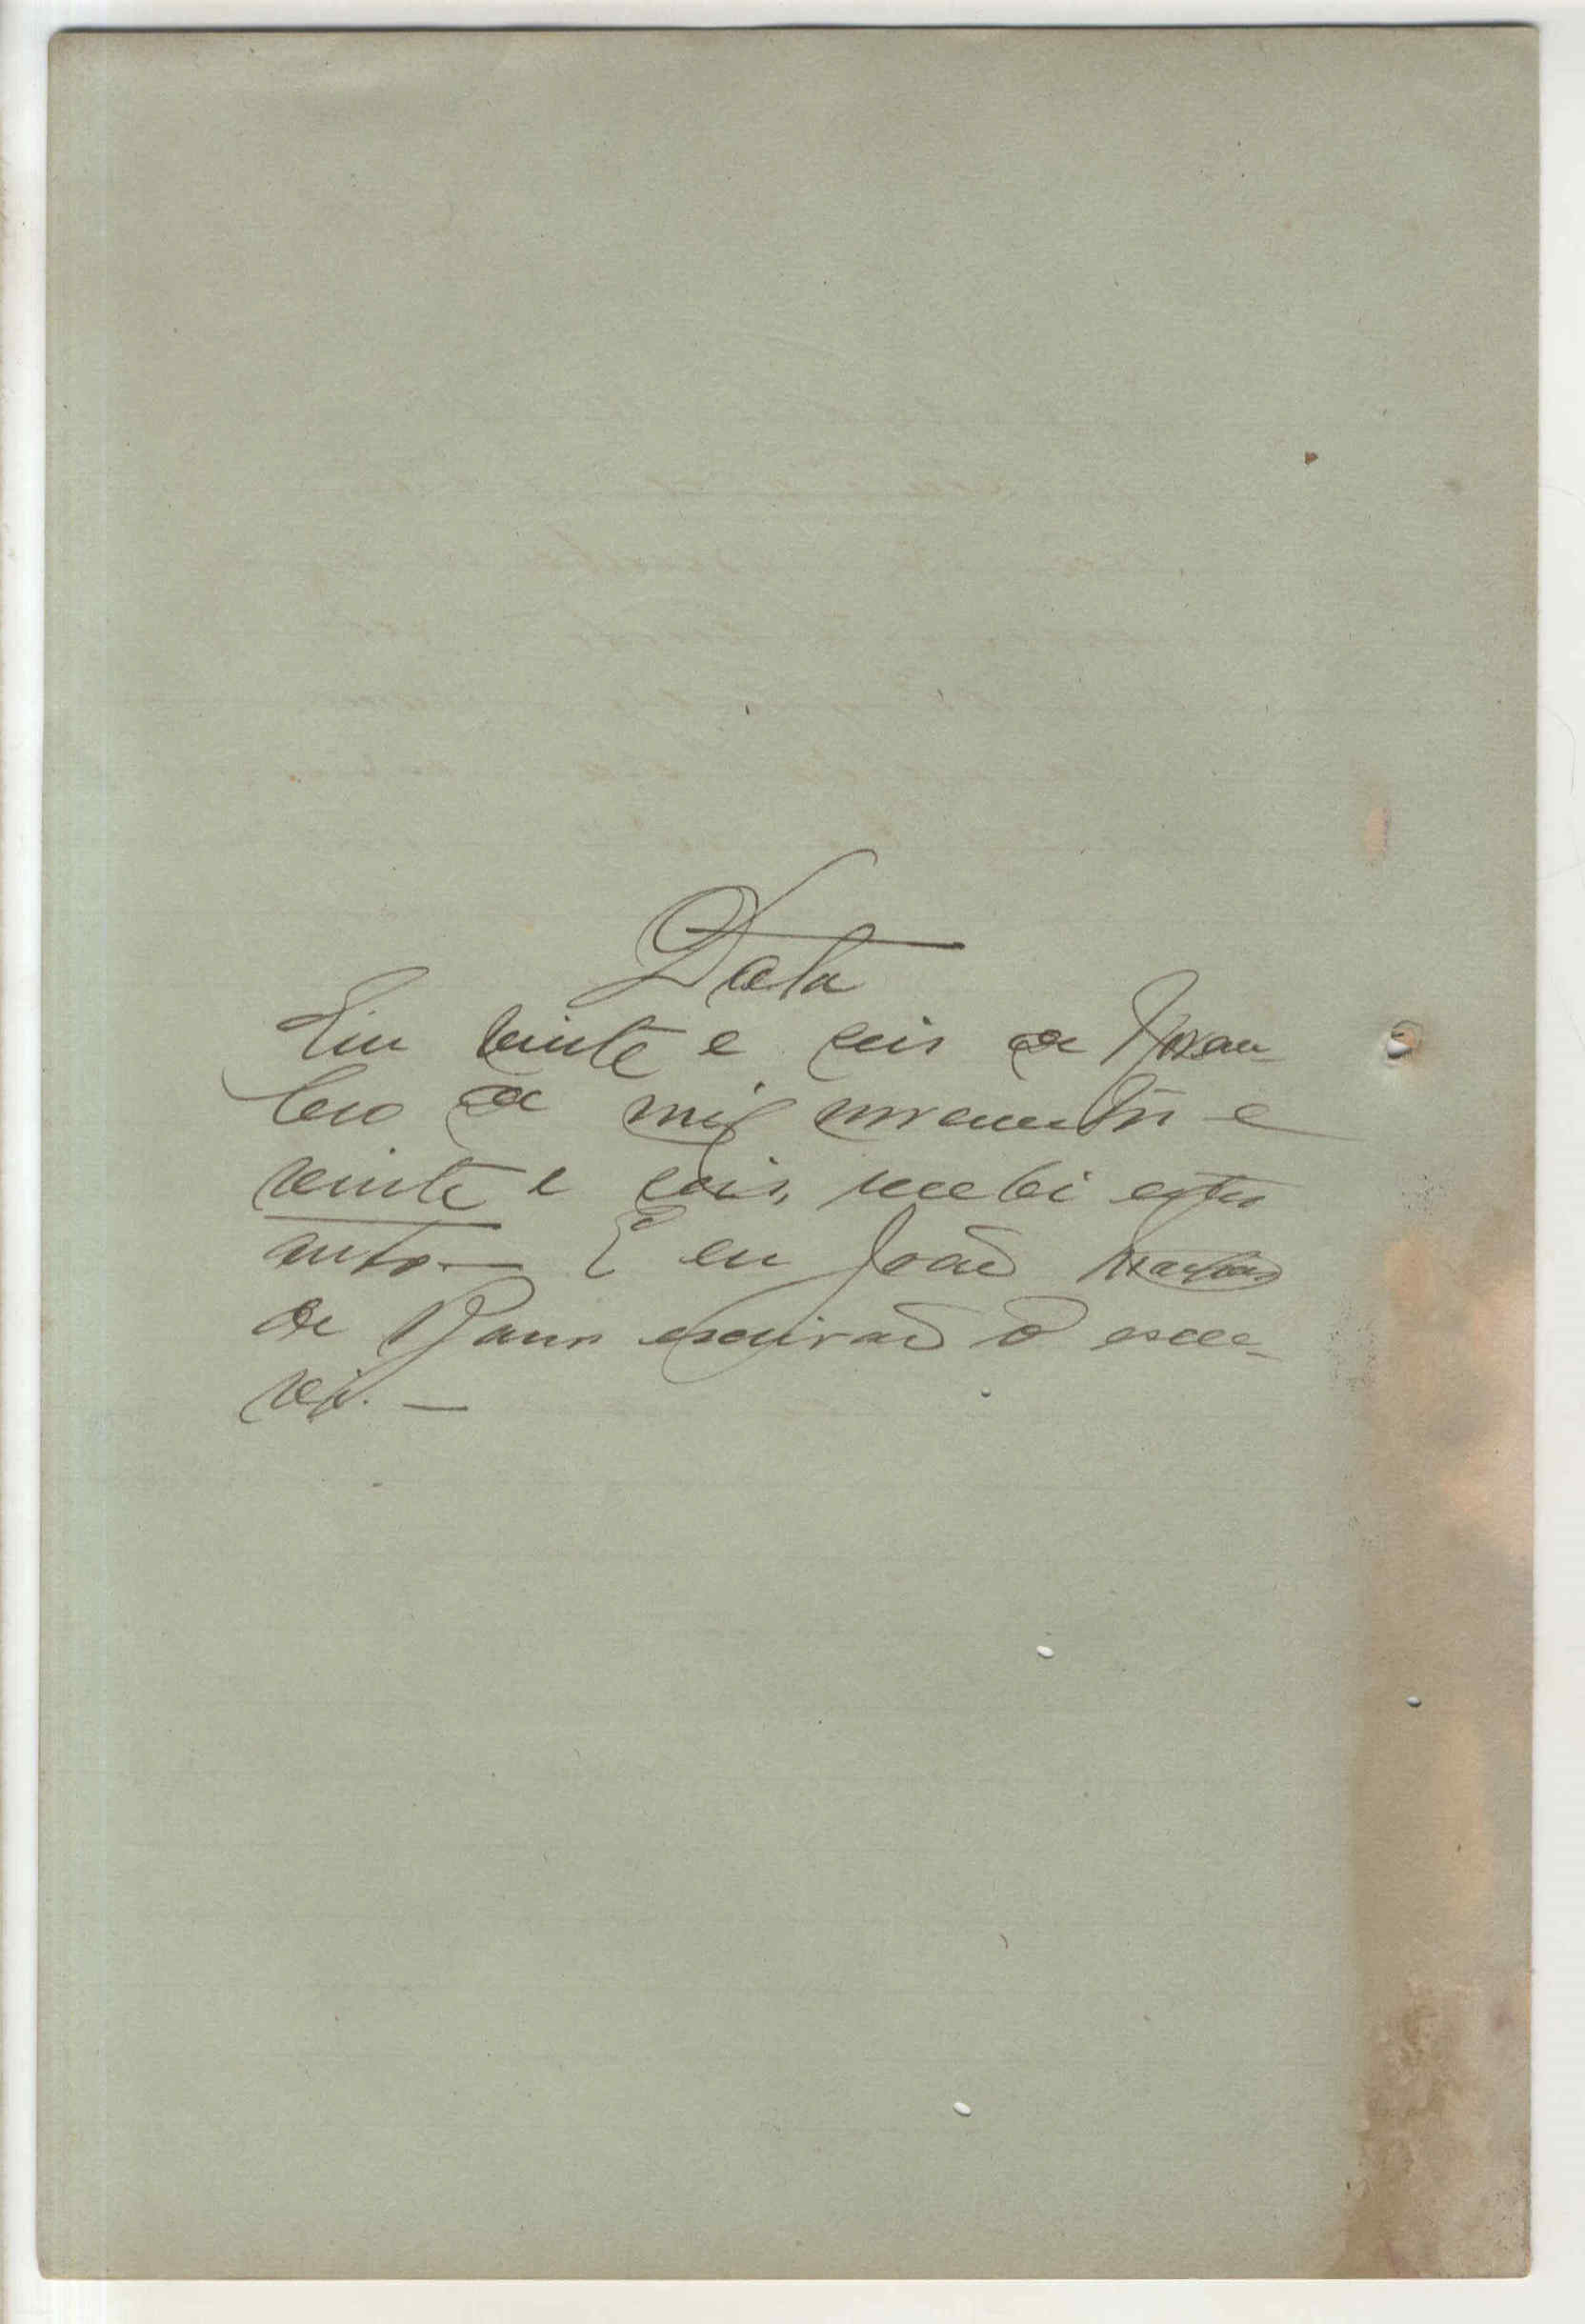 Data
Em vinte e seis de Novem-
bro de mil novecentos e
vinte e seis, recebi estes
autos.— E eu João
de Barros escrivão o escre-
vi.—